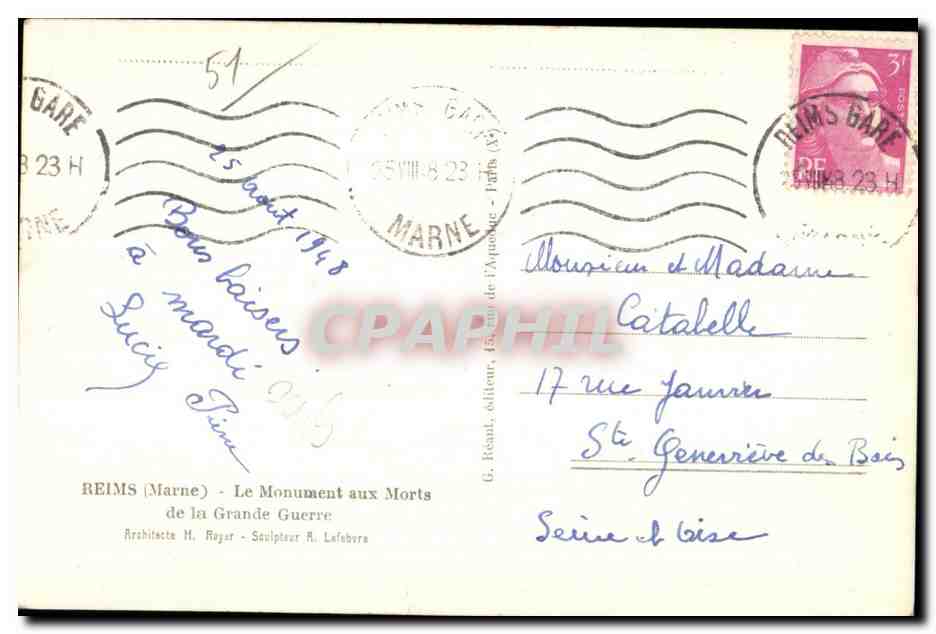 51/
GARE
8 23 H
REIMS GARE
25 VIII 48 23 H
MARNE
3F
RF
REIMS GARE
25 VIII 48 23 H
25 Aout 1948
Bons baisers
à mardi
Lucie Pierre
CPAPHIL
G. Réant, éditeur, 15, rue de l'Aqueduc - Paris (X)
Monsieur et Madame
Catabelle
17 rue Janvier
Ste Geneviève des Bois
Seine et Oise
REIMS (Marne) - Le Monument aux Morts
de la Grande Guerre
Architecte H. Royer - Sculpteur A. Lefebvre